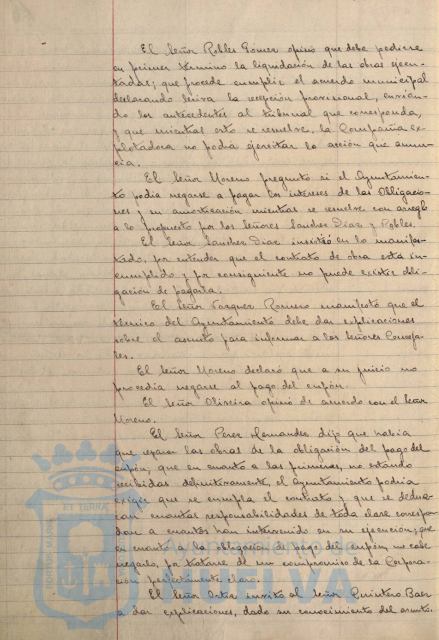 El Señor Robles Gómez opinó que debe pedirse
en primer término la liquidación de las obras ejecu-
tadas; que procede cumplir el acuerdo municipal
declarando la recepción provisional, envian-
do los antecedentes al tribunal que corresponda,
y que mientras esto se resuelve, la Compañia ex-
plotadora no podia ejercitar la acción que anun-
cia.
El Señor Moreno preguntó si el Ayuntamien-
to podia negarse a pagar los intereses de las Obligacio-
nes y su amortización mientras se resuelve con arreglo
a lo propuesto por los Señores Sanchez Diaz y Robles.
El Señor Sanchez Diaz insistió en lo manifes-
tado, por entender que el contrato de obra esta in-
cumplido y por consiguiente no puede existir obli-
gación de pagarla.
El Señor Vazquez Romero manifestó que el
técnico del Ayuntamiento debe dar explicaciones
sobre el asunto para informar a los Señores Conceja-
les.
El Señor Moreno declaró que a su juicio no
procedia negarse al pago del cupón.
El Señor Oliveira opinó de acuerdo con el Señor
Moreno.
El Señor Perez Hernandez dijo que habia
que separar las obras de la obligación del pago del
cupón, que en cuanto a las primeras, no estando
recibidas definitivamente, el Ayuntamiento podia
exigir que se cumpla el contrato y que se deduz-
can cuantas responsabilidades de toda clase correspon-
dan a cuantos han intervenido en su ejecución; que
en cuanto a la obligación de pago del cupón, no cabe
negarlo, por tratarse de un compromiso de la Corpora-
ción perfectamente claro.
El Señor invitó al Señor Quintero Baez
a dar explicaciones, dado su conocimiento del asunto.